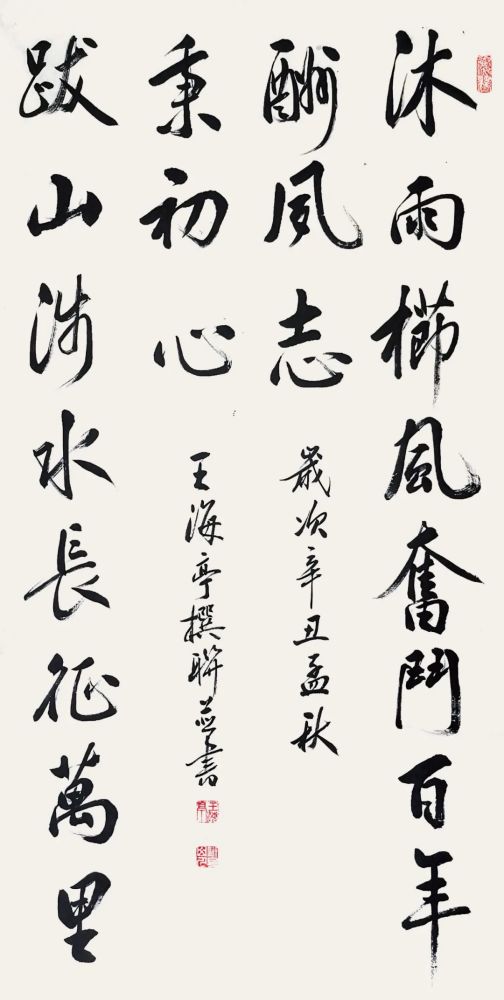 沐雨櫛風奮鬥百年
酬夙志
歲次辛丑孟秋
跋山涉水長征萬里
秉初心
王海亭撰聯並書